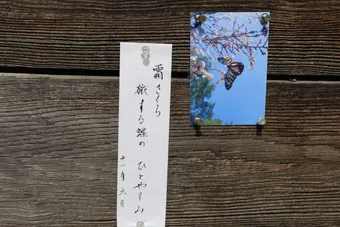 霜さくら
旅する蝶の
ひとやすみ
十一月六日